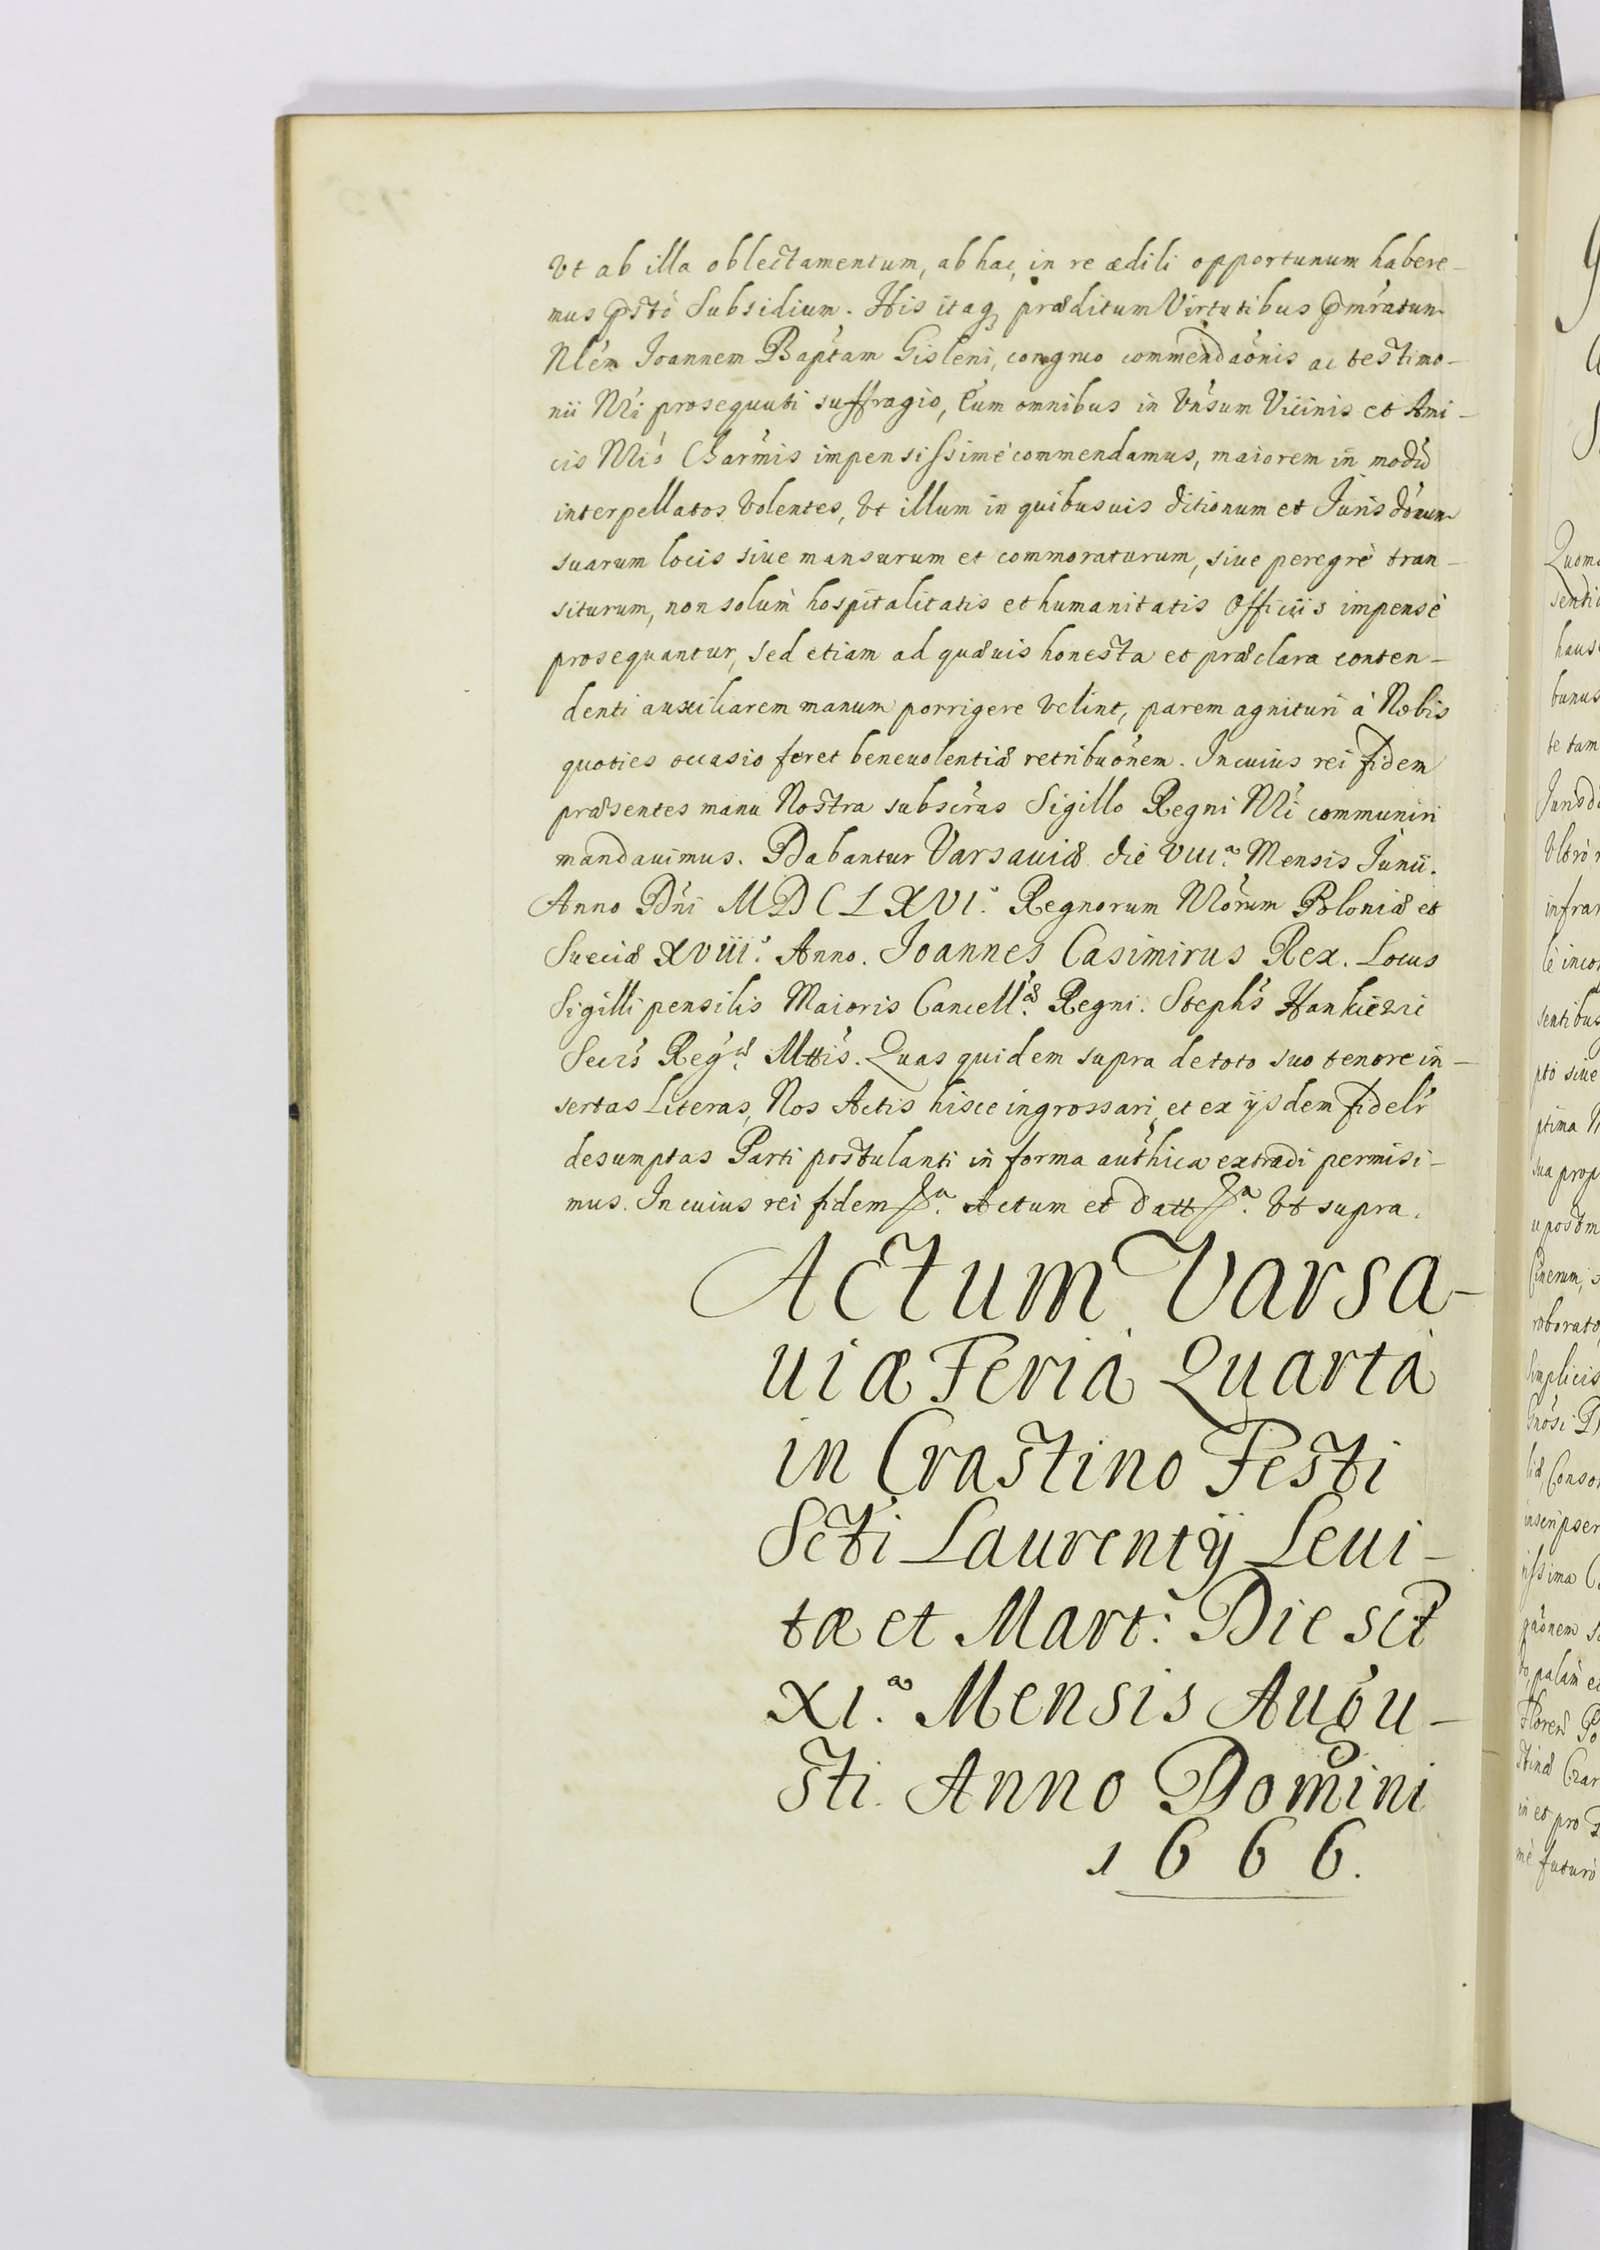 Vt ab illa oblectamentum, ab hac, in re ædili opportunum habere-
mus Subsidium. His itaq, præditum Virtutibus
Nlem Joannem Baptam Gisleni, congruo commendaonis ac testimo-
nii Nri prosequuti suffragio, Eum omnibus in Vnsum Vicinis et Ami-
cis Nris Charmis impensissime commendamus, maiorem in modu
interpellatos Volentes, Vt illum in quibusuis ditionum et Juris
suarum locis siue mansurum et commoraturum, siue peregrè tran-
siturum, non solum hospitalitatis et humanitatis Officiis impensè
prosequantur, sed etiam ad quæuis honesta et præclara conten-
denti auxiliarem manum porrigere Velint, parem agnituri à Nobis
quoties occasio feret beneuolentiæ retribuonem. In cuius rei fidem
præsentes manu Nostra subscras Sigillo Regni Nri communiri
mandauimus. Dabantur Varsauiæ die VIII.a Mensis Junii.
Anno Dni MDCLXVI.o Regnorum Nrorum Poloniæ et
Sueciæ XVIII.o Anno. Joannes Casimirus Rex. Locus
Sigilli pensilis Maioris Cancell.æ Regni. Stephs Hankiewic
Secrs Reg.æ Mttis. Quas quidem supra de toto suo tenore in-
sertas Literas, Nos Actis hisce ingrossari, et ex ijsdem fidelr
desumptas Parti postulanti in forma authica extradi permisi-
mus. In cuius rei fidem &a. Actum et Datt &a. Vt supra.
Actum Varsa-
uiæ Feria Quarta
in Crastino Festi
Scti Laurentij Leui-
tæ et Mart: Die sct
XI.a Mensis Augu-
sti. Anno Domini
1666.
Quomo
senti
haus
bunus
te tam
infra
sentibus
pto siue
ptima
sua prop
roborato
simplicis
me futuro